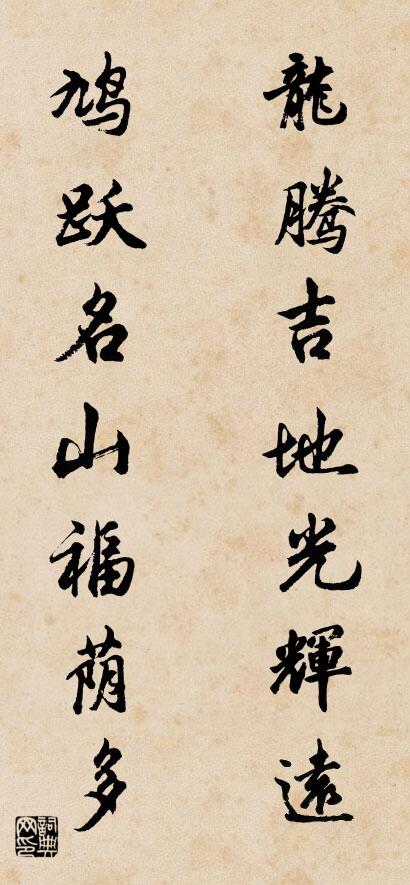 龍腾吉地光輝遠
鸠跃名山福荫多
詞典网印